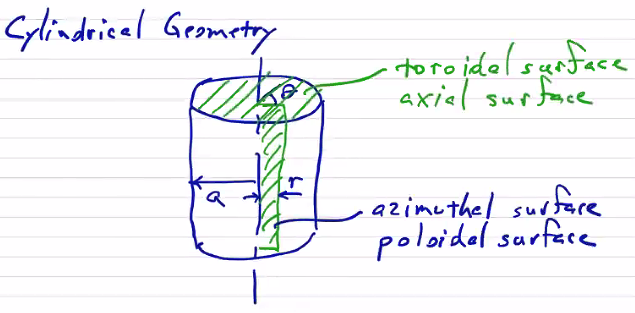 Cylindrical Geometry
toroidal surface
axial surface
θ
a
r
azimuthal surface
poloidal surface